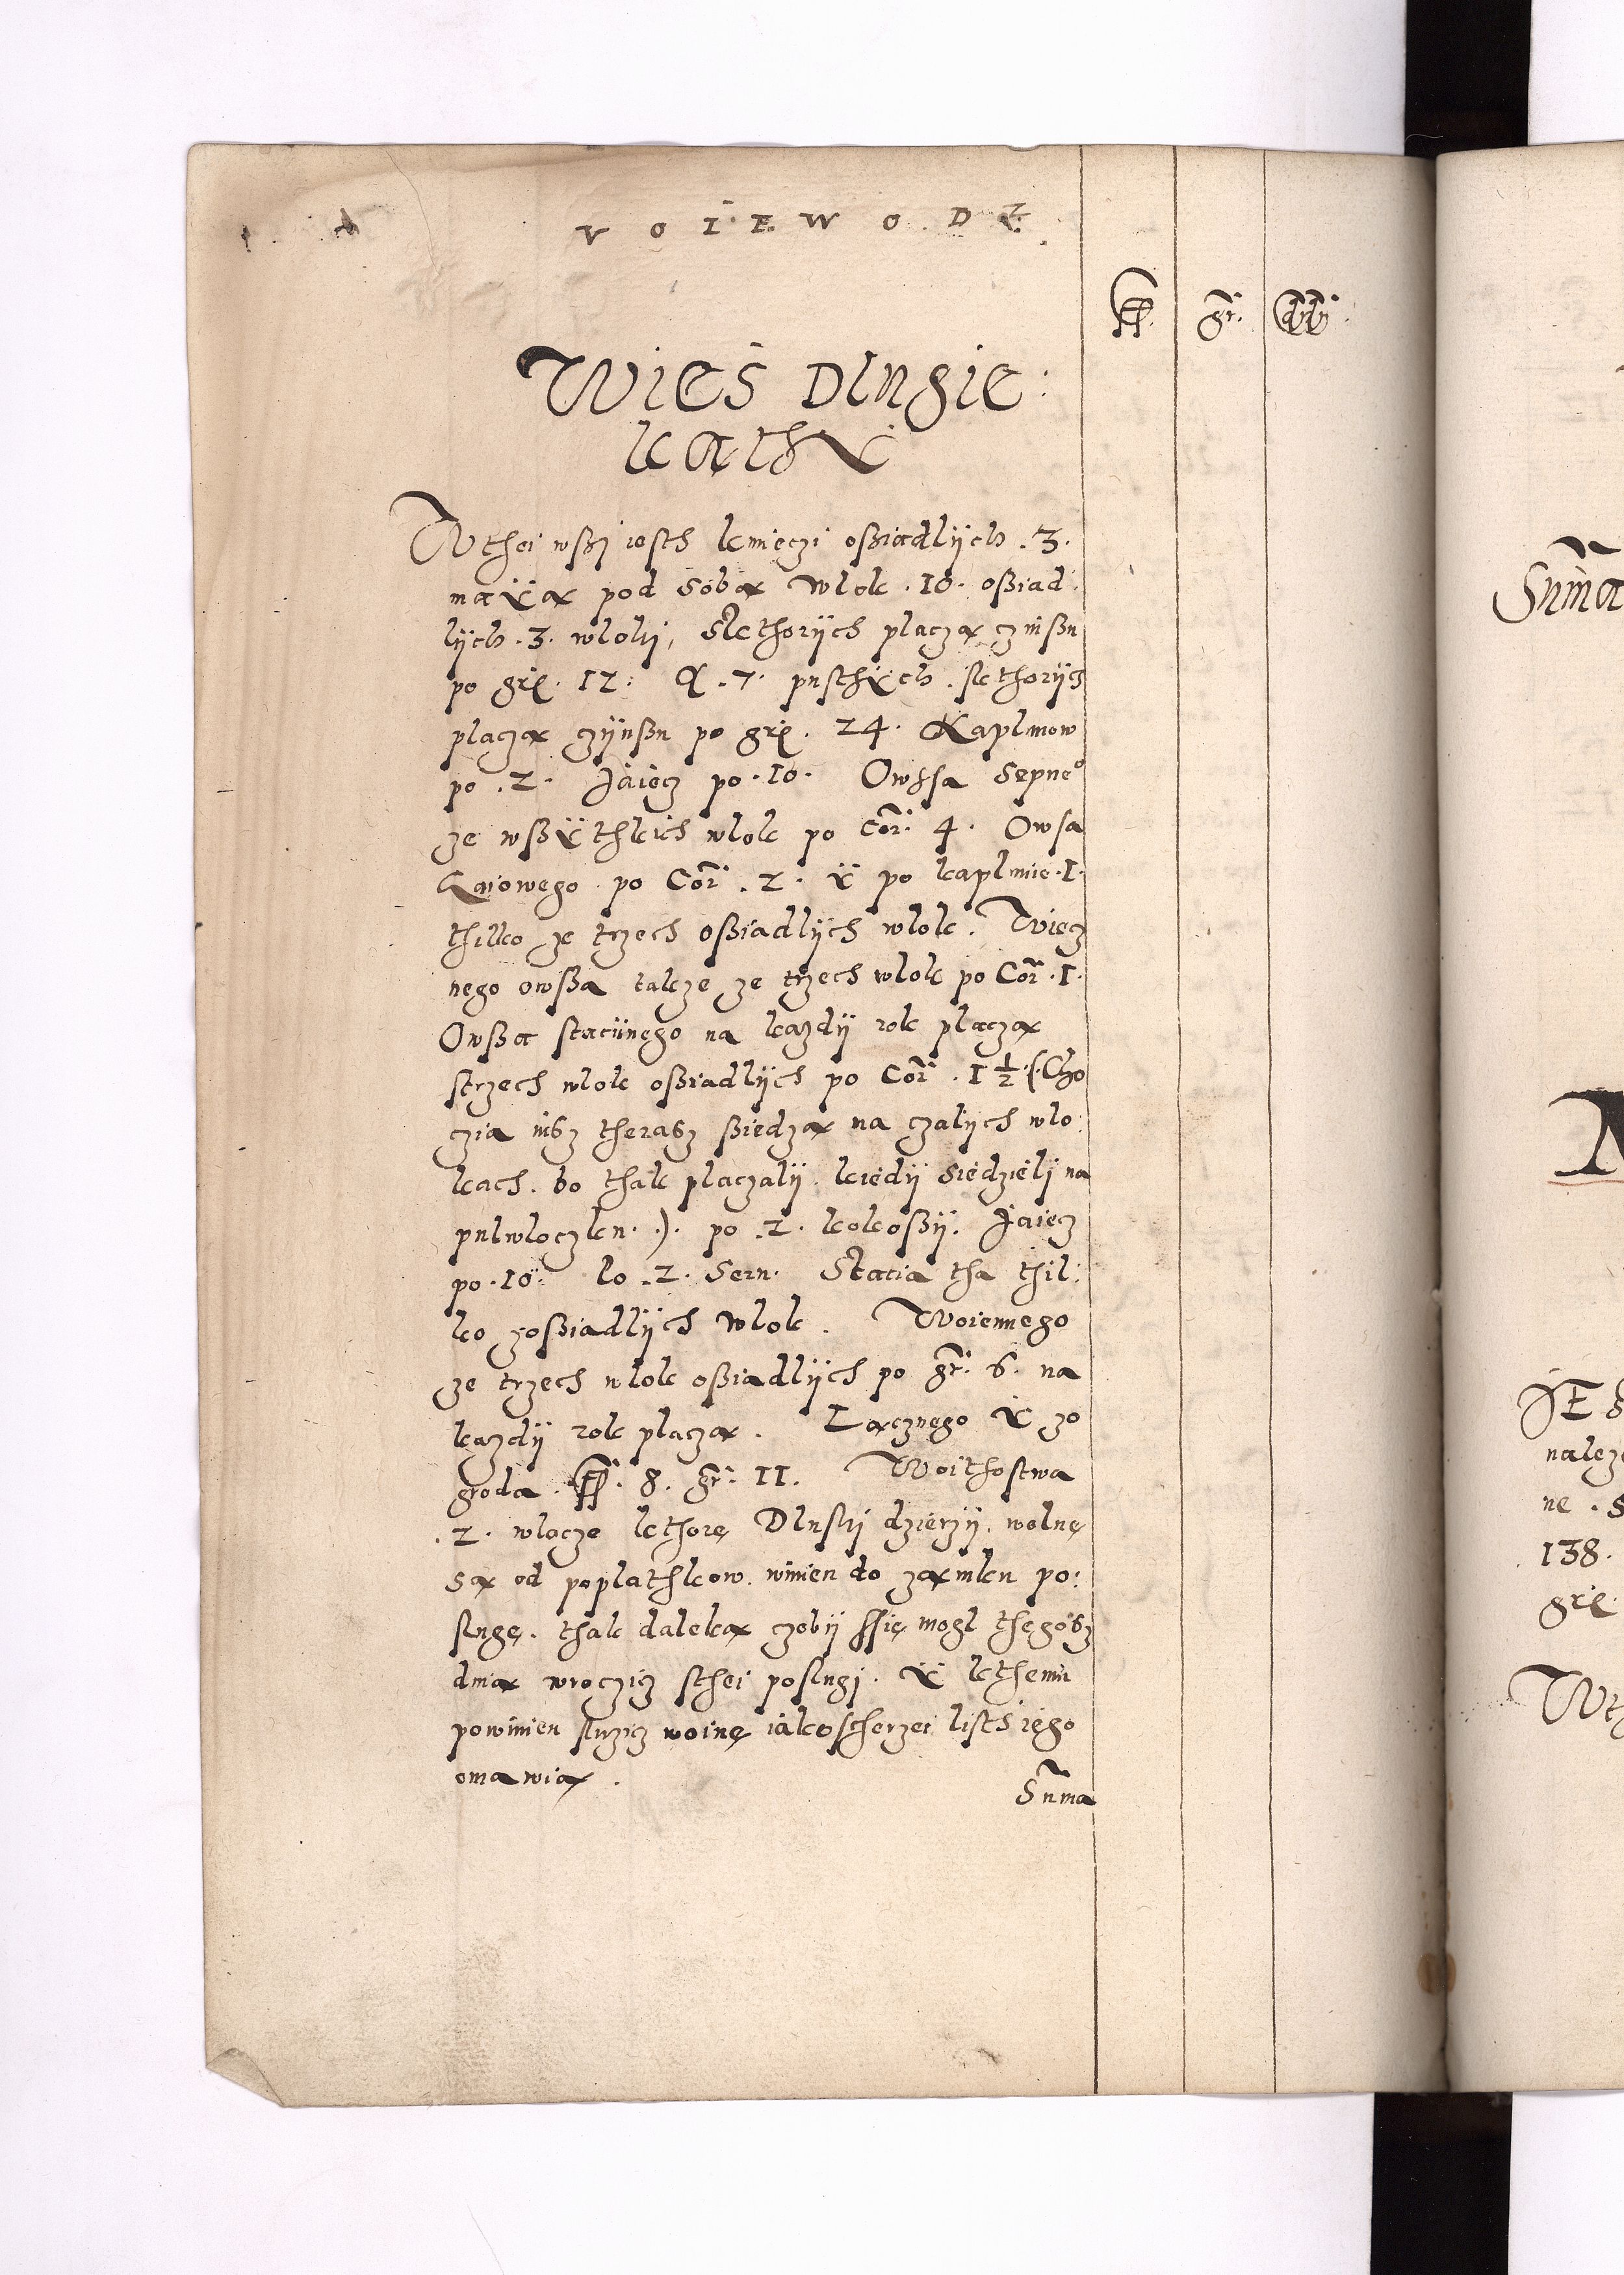 VOIEWODZ.
ff. gr. den.
Wies Dlugie:
kąthÿ
W thei wßÿ iesth kmieczi oßiadlÿch .3.
maÿą pod sobą wlok .10. oßiad:
lÿch .3. wloki, Sktorÿch placzą czinßu
po grę. 12. A .7. pusthÿch. skthorÿch
placzą czÿnßu po grę. 24. Kaplunow
po .2. Jaiecz po .10. Owssa sepne°
ze wßÿthkich wlok po Cor. 4. Owsa
Gaiowego po Cor. 2. ÿ po kaplunie .1.
thilko ze trzech oßiadlÿch wlok. Wiecz
nego owßa takze ze trzech wlok po Cor .1.
Owßa stacÿinego na kazdÿ rok placzą
strzech wlok oßiadlÿch po Cor. 1½ (Cho
czia iusz therasz ßiedzą na czalÿch wlo:
kach. bo thak placzalÿ. kiedÿ siedzieli na
pulwloczku.) po .2. kokoßÿ. Jaiecz
po .10. lo .2. Seru. Stacia tha thil:
ko zoßiadlÿch wlok. Woiennego
ze trzech wlok oßiadlÿch po gr. 6. na
kazdÿ rok placzą. Lącznego ÿ zo
groda. ff. 8. gr. 11. Woithostwa
.2. wlocze kthore Dluski dzierzÿ. wolnę
są od poplathkow. winien do zamku po:
slugę. thak daleką czobÿ ssię mogl thegosz
dnia wroczicz sthei poslugi. ÿ kthemu
powinien sluzicz woinę iako scherzei listh iego
omawia.
Suma
Suma
JE S
nalęz
ne . S
138.
grę